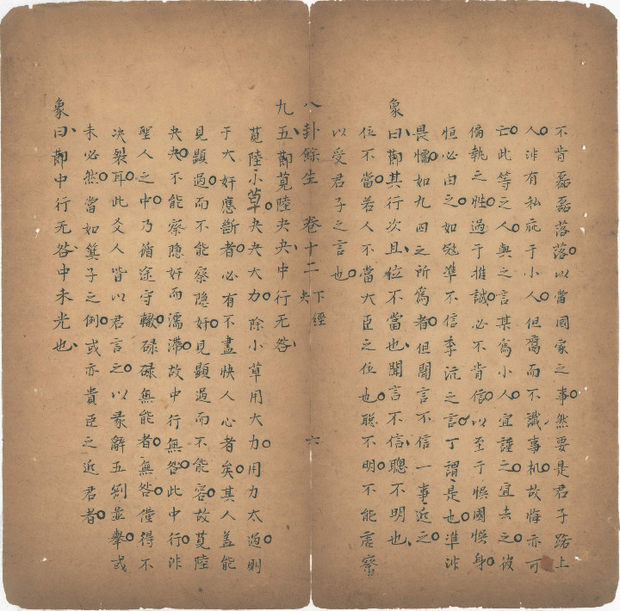 不肯磊磊落落以當國家之事然要是君子路上
人非有私庇于小人但腐而不識事机故悔亦可
亡此等之人與之言其為小人宜謹之宜去之彼
偏執之性過于推誠必不肯信以至于悞國悞身
恒必由之如寇準不信李沆之言丁謂是也準非
畏懦如九四之所為者但聞言不信一事近之
象曰節其行次且位不當也聞言不信聰不明也
位不當若人不當大臣之位也聰不明不能審察
以受君子之言也
八卦餘生 卷十二 下經 夬 六
九五節莧陸夬夬中行无咎
莧陸小草夬夬大力除小草用大力用力太過則
于大奸應斷者必有不盡快人心者矣其人蓋能
見顯過而不能察隱奸見顯過而不能容故莧陸
夬夬不能察隱奸而濡滯故中行無咎此中行非
聖人之中乃循途守轍碌碌無能者無咎僅得不
决裂耳此爻人皆以君言之以彖辭五剛並舉或
未必然當如箕子之例或亦貴臣之近君者
象曰節中行无咎中未光也